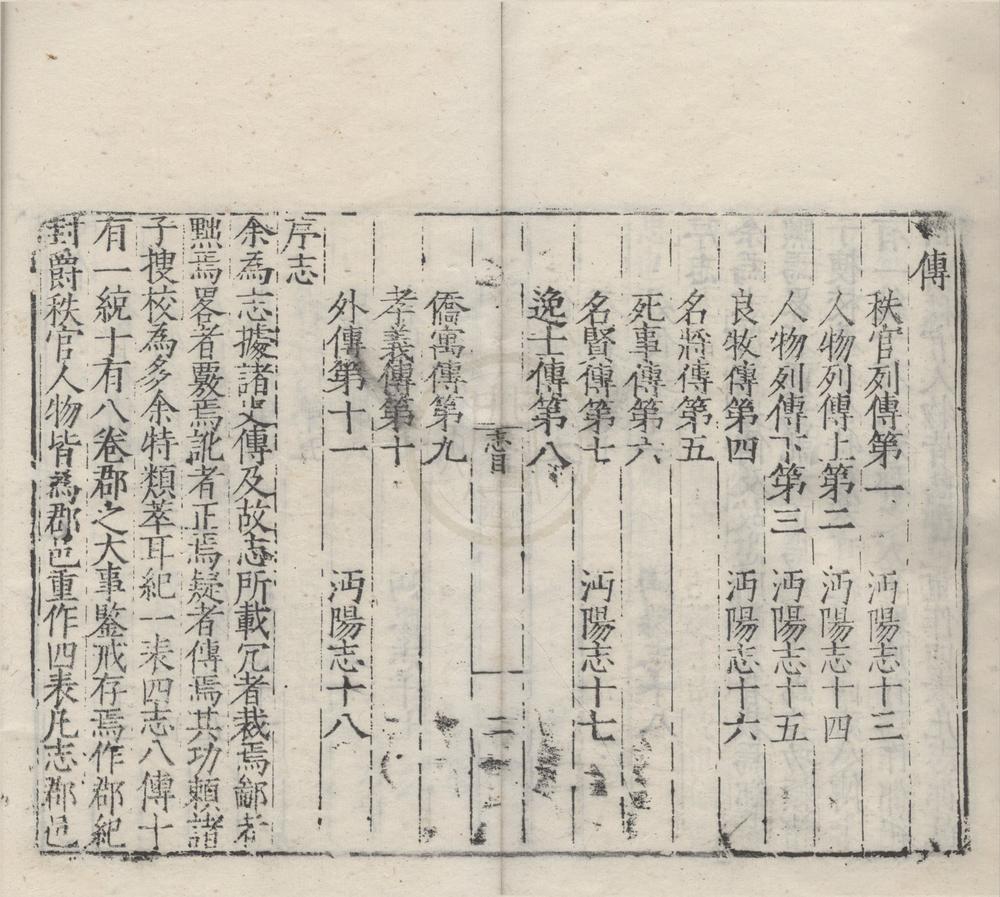 傳
秩官列傳第一 沔陽志十三
人物列傳上第二 沔陽志十四
人物列傳下第三 沔陽志十五
良牧傳第四 沔陽志十六
名將傳第五
死事傳第六
名賢傳第七 沔陽志十七
逸士傳第八
志目 二
僑寓傳第九
孝義傳第十
外傳第十一 沔陽志十八
序志
余為志據諸史傳及故志所載冗者裁焉鄙者
黜焉畧者覈焉訛者正焉疑者傳焉其功賴諸
子搜校為多余特類萃耳紀一表四志八傳十
有一統十有八卷郡之大事鑒戒存焉作郡紀
封爵秩官人物皆為郡邑重作四表凡志郡邑